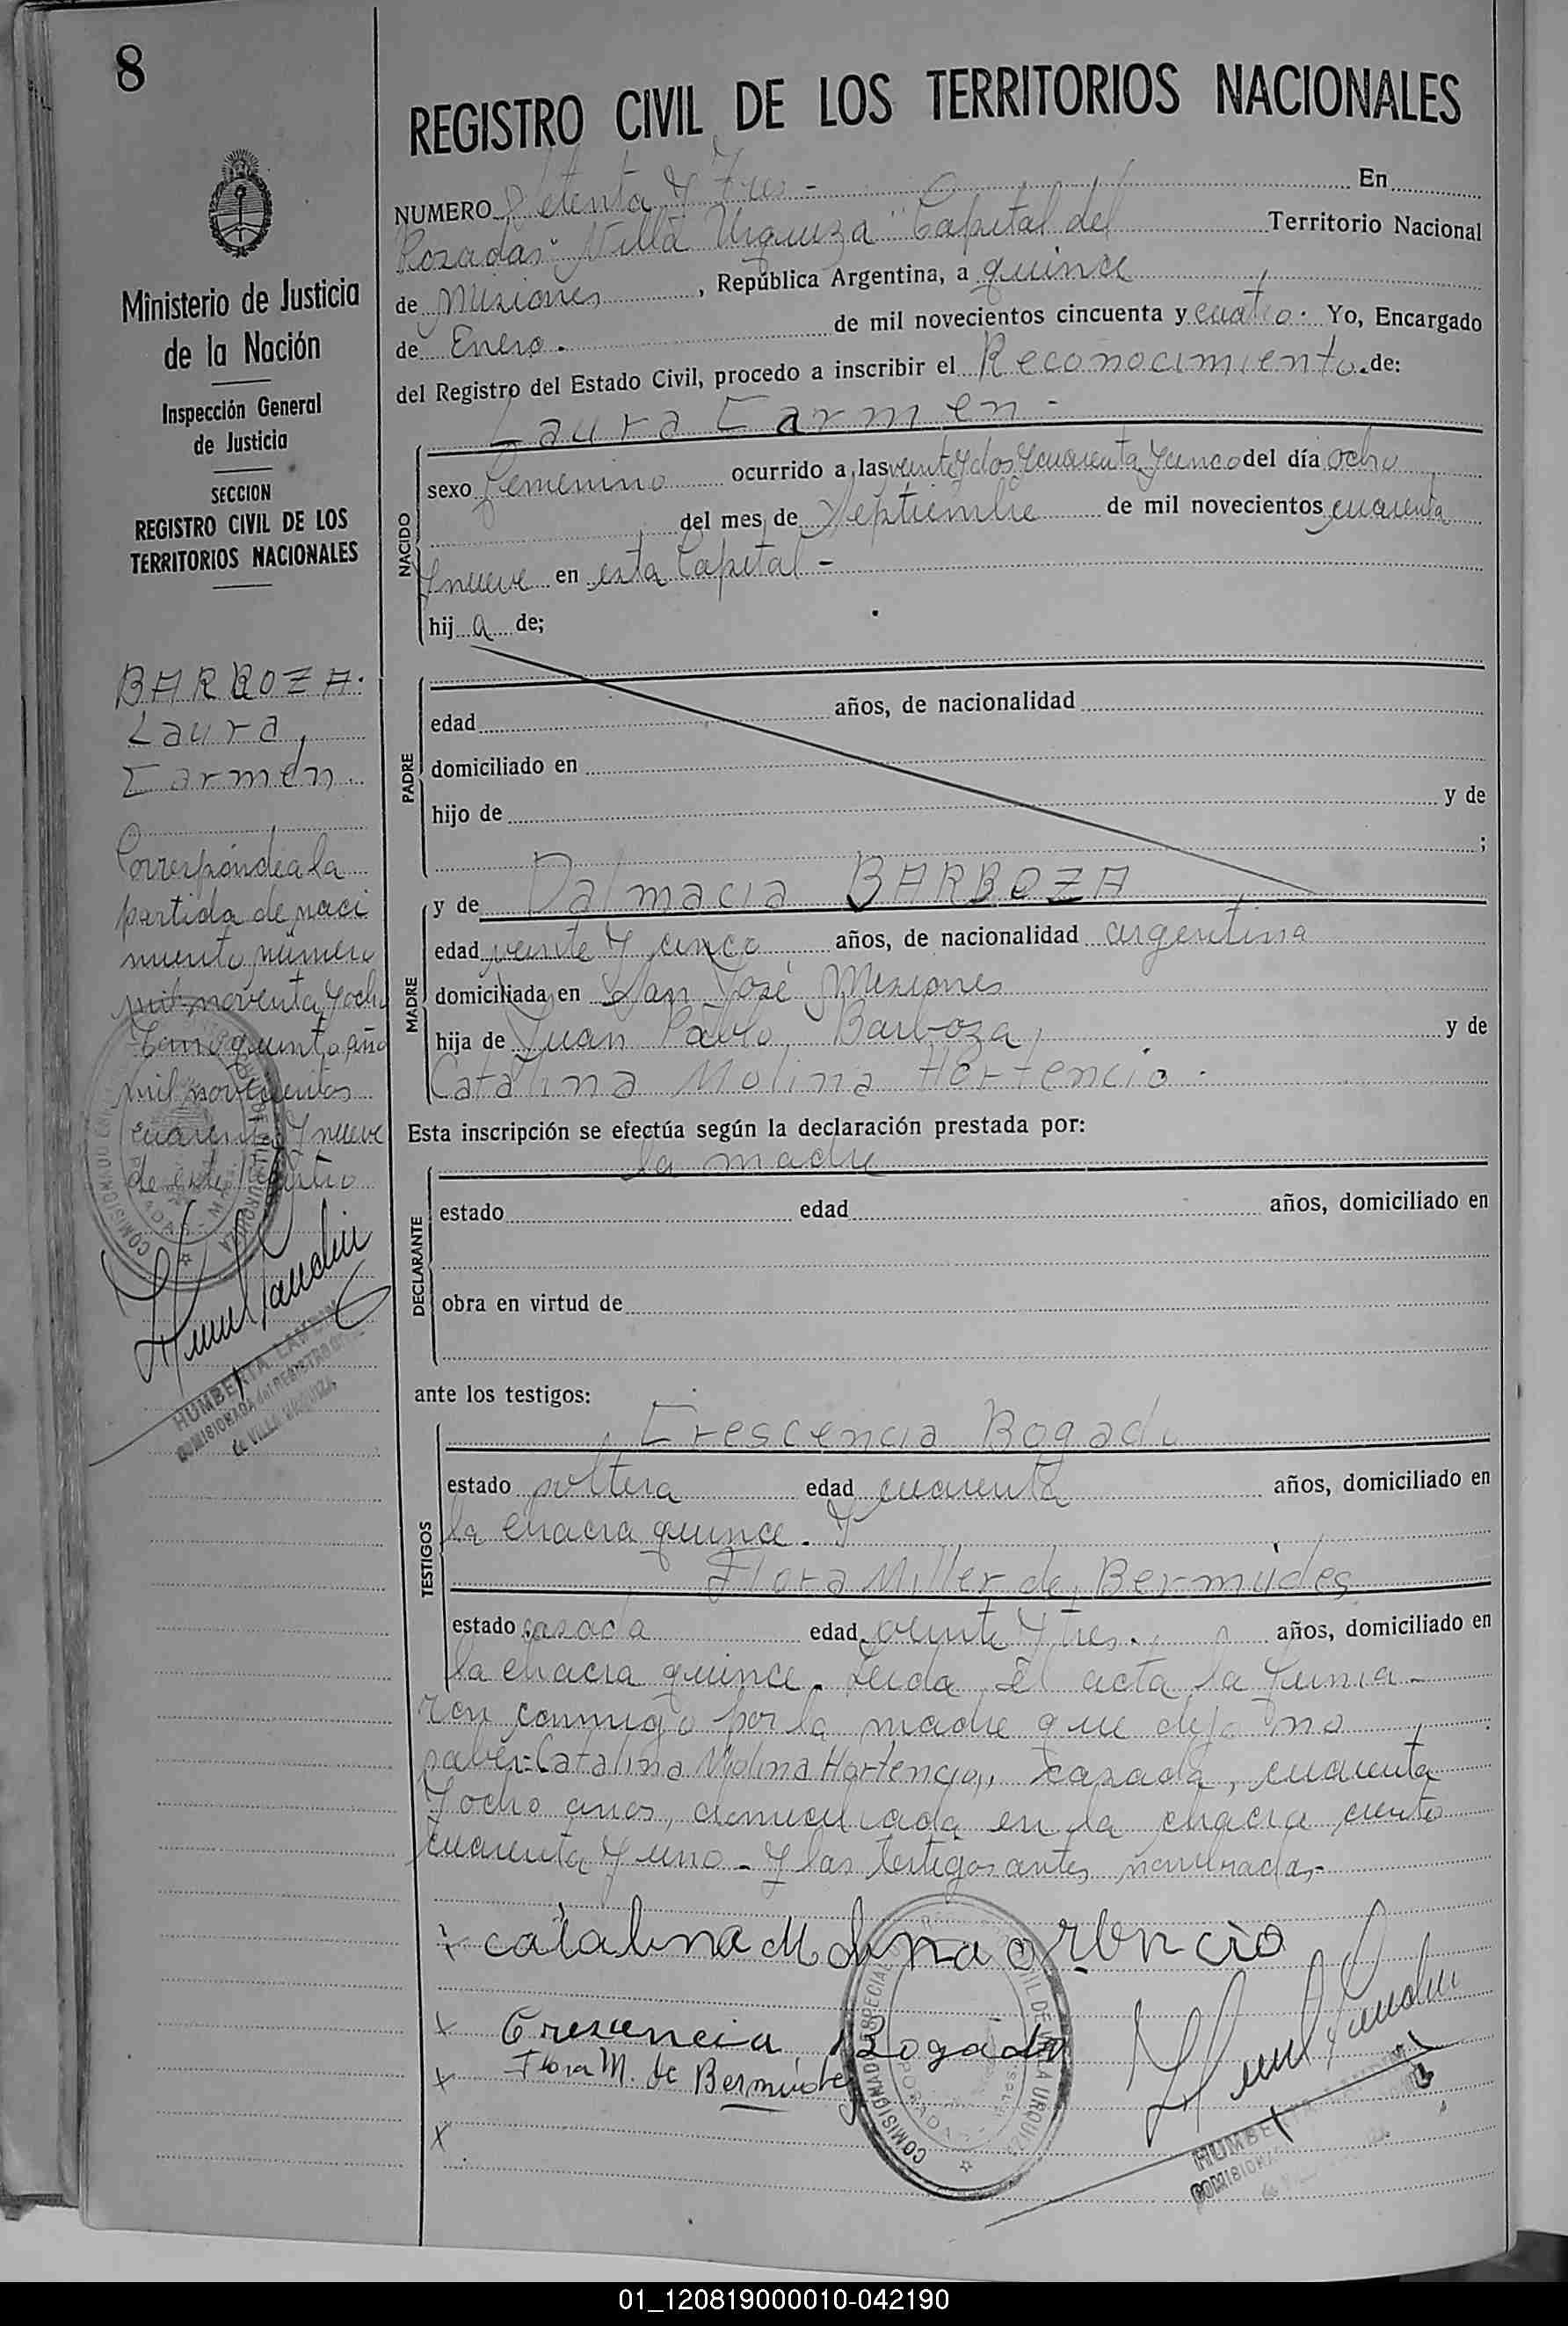 8
REGISTRO CIVIL DE LOS TERRITORIOS NACIONALES
Ministerio de Justicia
de la Nación
Inspección General
de Justicia
SECCION
REGISTRO CIVIL DE LOS
TERRITORIOS NACIONALES
BARBOZA.
Laura
Carmen
Corresponde a la
partida de naci
miento número
mil noventa y ocho
Tomo quinto año
mil novecientos
cuarenta y nueve
de este Registro
HUMBERTA LANDIN
COMISIONADA del REGISTRO
de VILLA URQUIZA
NUMERO Setenta y Tres - En
Posadas "Villa Urquiza" Capital del Territorio Nacional
de Misiones, República Argentina, a quince
de Enero. de mil novecientos cincuenta y cuatro. Yo, Encargado
del Registro del Estado Civil, procedo a inscribir el Reconocimiento. de:
Laura Carmen -
NACIDO
sexo femenino ocurrido a las veinte y dos y cuarenta y cinco del día ocho
del mes de Septiembre de mil novecientos cuarenta
y nueve en esta Capital -
hija de;
PADRE
edad años, de nacionalidad
domiciliado en
hijo de y de
;
MADRE
y de Dalmacia BARBOZA
edad veinte y cinco años, de nacionalidad argentina
domiciliada en San José Misiones
hija de Juan Pablo Barboza y de
Catalina Molina Hortencio.
Esta inscripción se efectúa según la declaración prestada por:
la madre
DECLARANTE
estado edad años, domiciliado en
obra en virtud de
ante los testigos:
TESTIGOS
Crescencia Bogado
estado soltera edad cuarenta años, domiciliado en
la chacra quince. Y
Flora Miller de Bermudes
estado casada edad veinte y tres. años, domiciliado en
la chacra quince. Leida el acta la firma-
ron conmigo por la madre que dijo no
saber: Catalina Molina Hortencio, casada, cuarenta
y ocho años, domiciliada en la chacra ciento
cuarenta y uno - y las testigos antes nombradas-
x catalina Molina ortencio
x Crescencia Bogado
x Flora M. de Bermúdez
x
COMISIONADO ESPECIAL
CIVIL DE VILLA URQUIZA
POSADAS
01_120819000010-042190